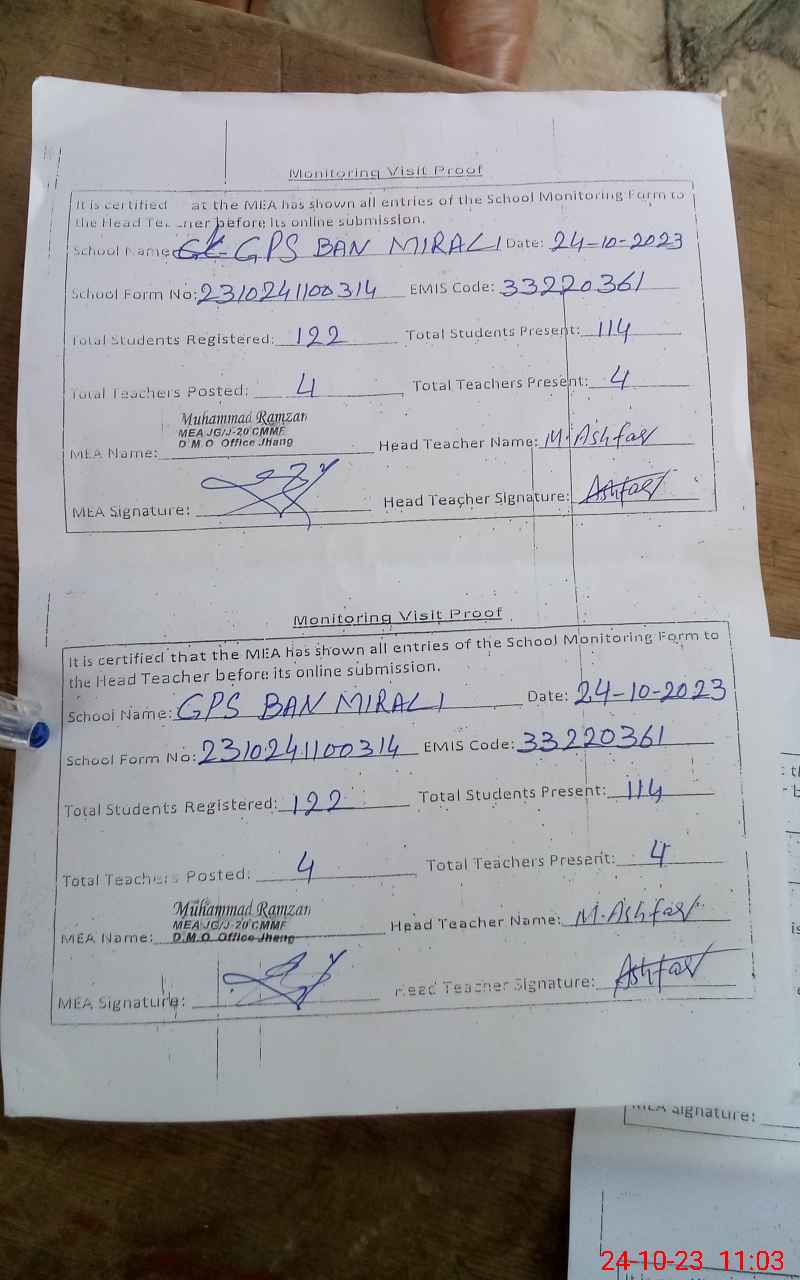 Monitoring Visit Proof
It is certified at the MEA has shown all entries of the School Monitoring Form to
the Head before its online submission.
School Name: GPS BAN MIRALI Date: 24-10-2023
School Form No: 2310241100314 EMIS Code: 33220361
Total Students Registered: 122 Total Students Present: 114
Total Teachers Posted: 4 Total Teachers Present: 4
Muhammad Ramzan
MEA JG/J-20 CMMF
D.M.O Office Jhang
MEA Name: Head Teacher Name: M. Ashfaq
MEA Signature: Head Teacher Signature: Ashfaq
Monitoring Visit Proof
It is certified that the MEA has shown all entries of the School Monitoring Form to
the Head Teacher before its online submission.
School Name: GPS BAN MIRALI Date: 24-10-2023
School Form No: 2310241100314 EMIS Code: 33220361
Total Students Registered: 122 Total Students Present: 114
Total Teachers Posted: 4 Total Teachers Present: 4
Muhammad Ramzan
MEA JG/J-20 CMMF
D.M.O Office Jhang
MEA Name: Head Teacher Name: M. Ashfaq
MEA Signature: Head Teacher Signature: Ashfaq
MEA Signature:
24-10-23 11:03